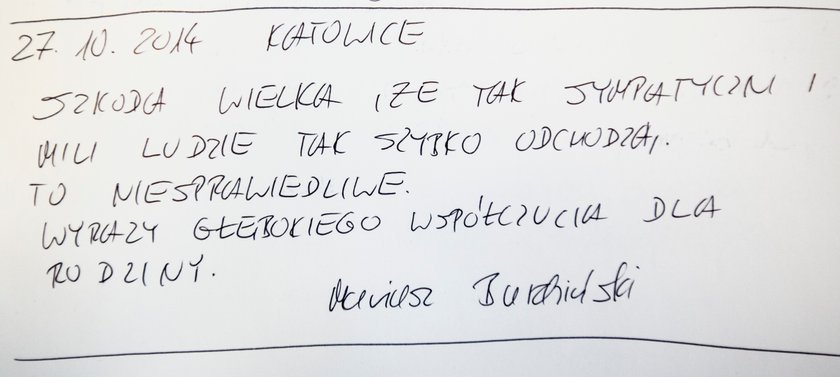 27. 10. 2014 KATOWICE
SZKODA WIELKA, ŻE TAK SYMPATYCZNI I
MILI LUDZIE TAK SZYBKO ODCHODZĄ.
TO NIESPRAWIEDLIWE.
WYRAZY GŁĘBOKIEGO WSPÓŁCZUCIA DLA
RODZINY.
Mariusz